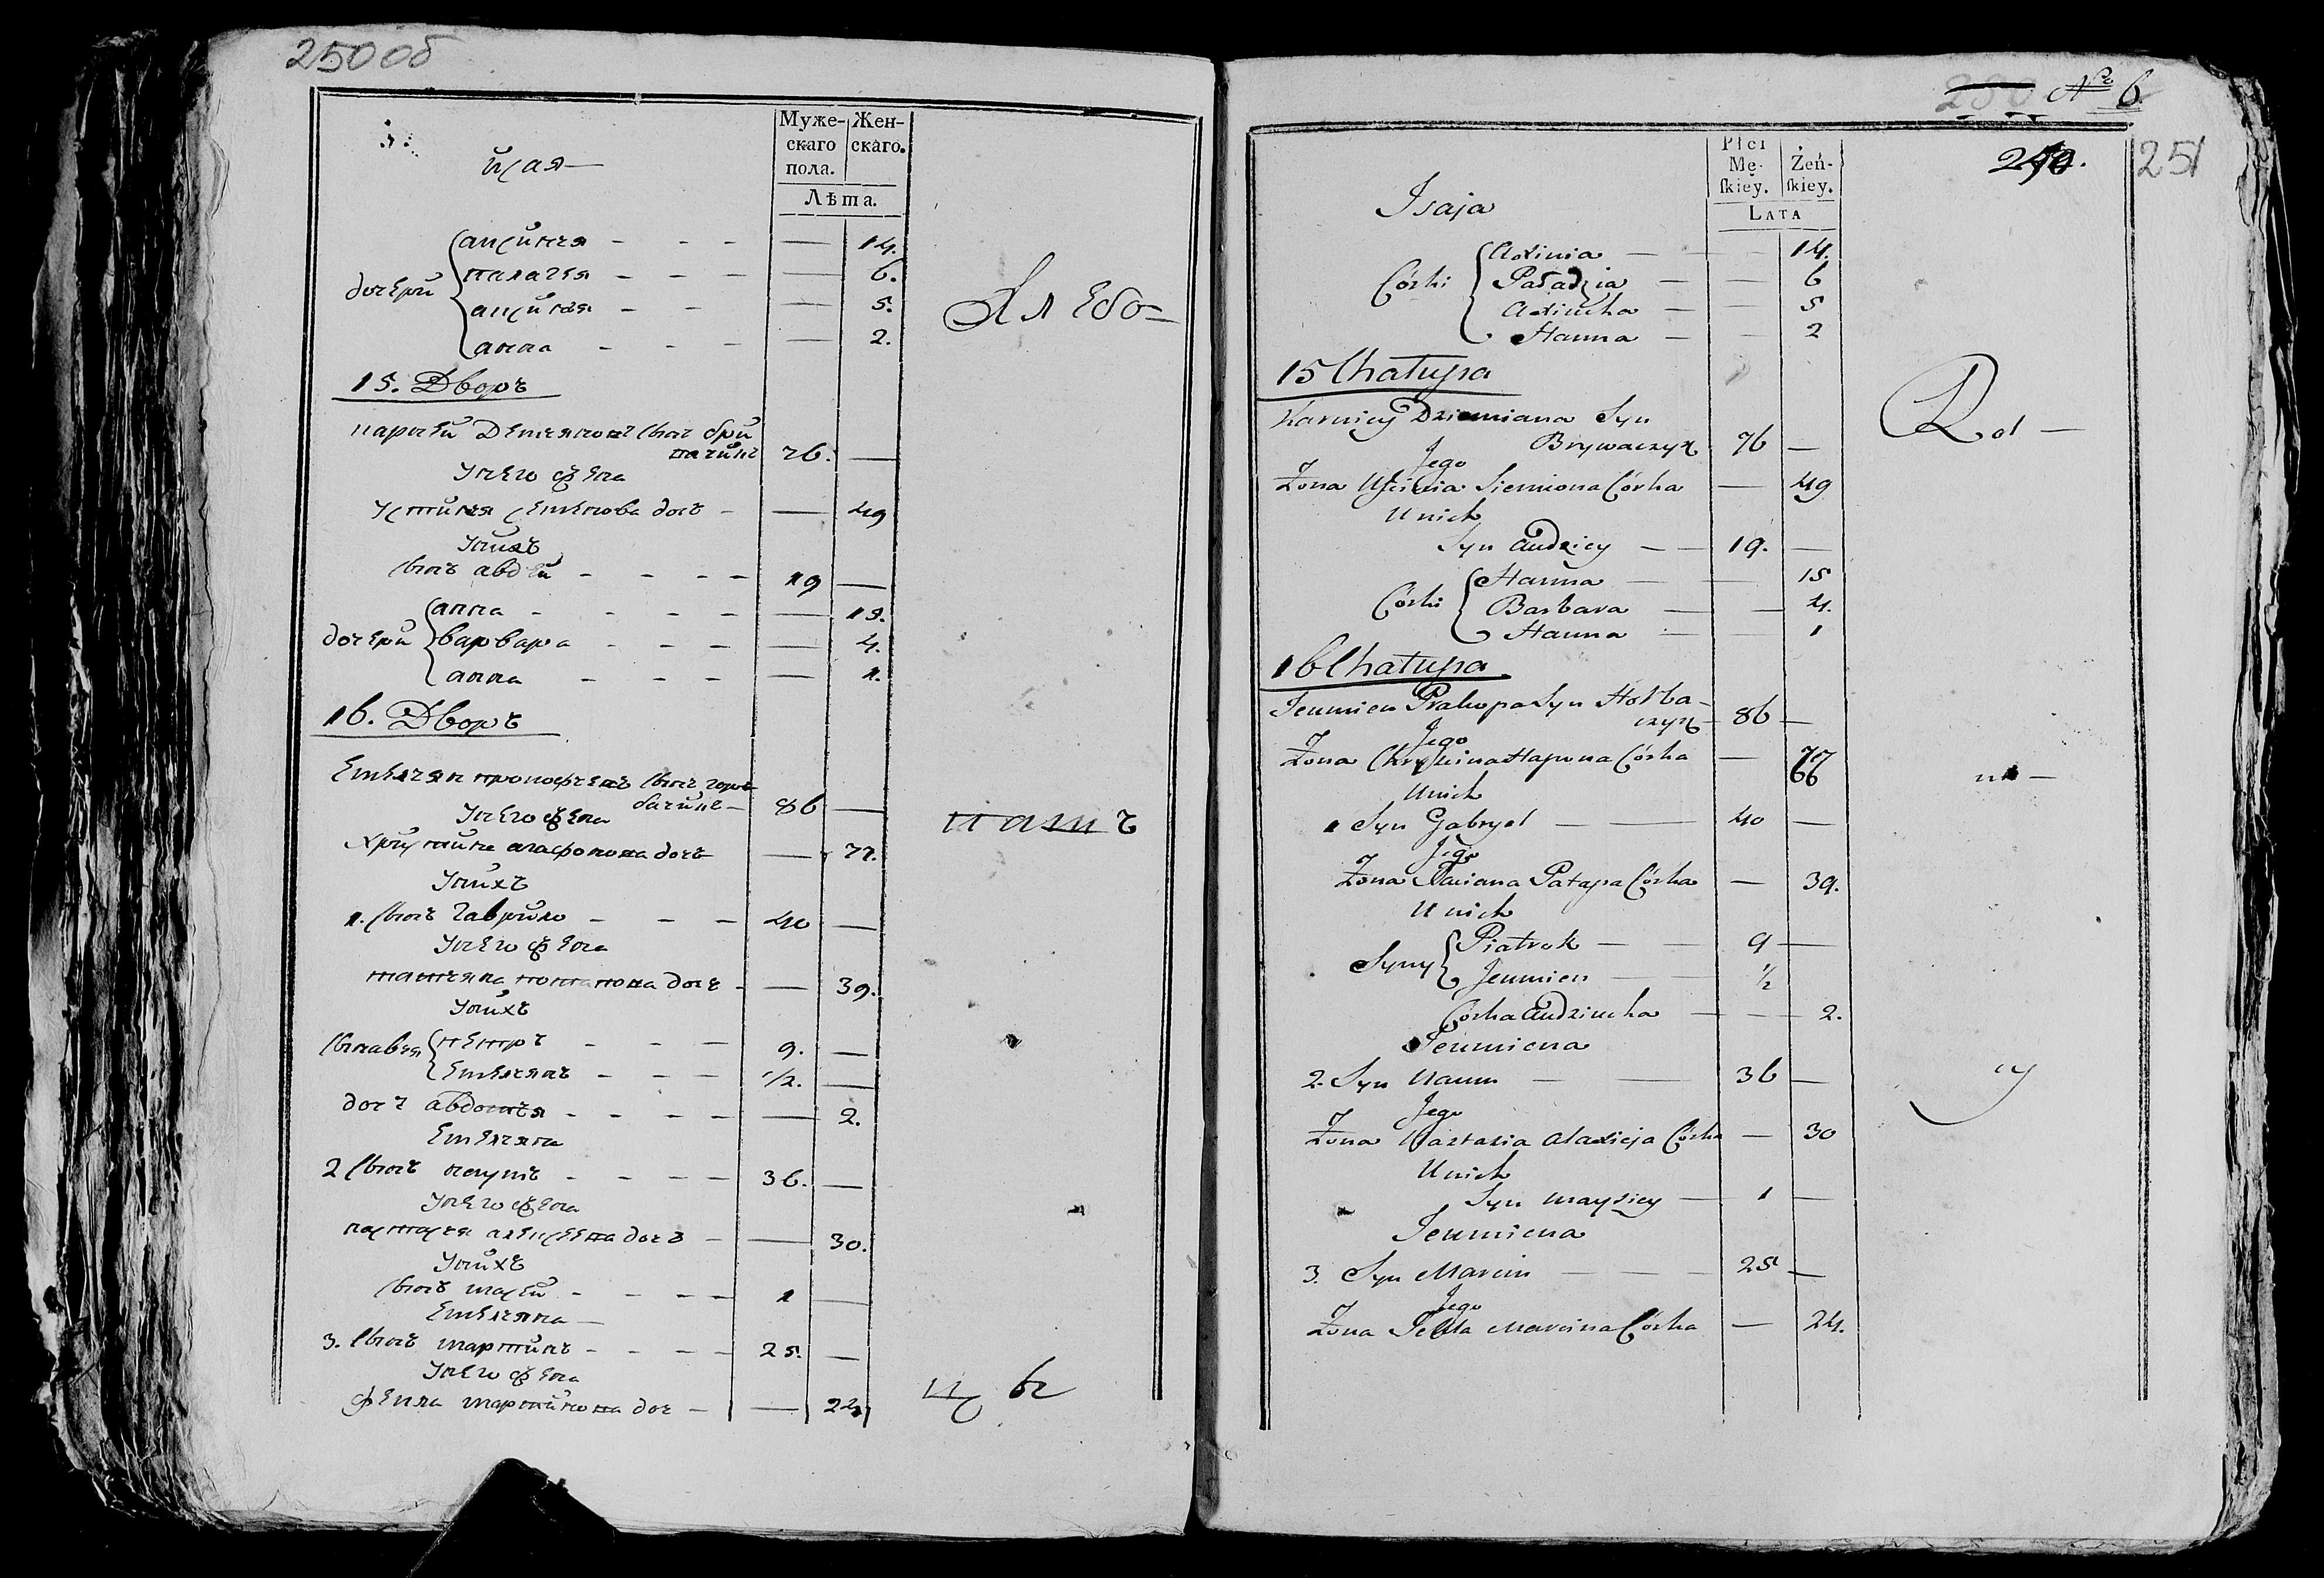 250 об
Муже-
скаго
пола.
Жен-
скаго.
Лѣта.
исая —
дочери
аксиння - - - — 14.
палагея - - - — 6.
аксинья - - — 5.
анна - - - — 2.
Алебо-
15. Дворъ
карней Демяновъ сынъ бры
вачинъ 76. —
У него жена
устиння семенова дочь - — 49
У нихъ
сынъ авдей - - - - 19 —
дочери
анна - - - - — 15.
варвара - - - — 4.
анна - - - — 1.
16. Дворъ
Емельян прокофьевъ сынъ горь
бачинъ — 86 —
У него жена
христина агафонова дочь — 77.
У нихъ
1. сынъ гаврило - - - 40 —
У него жена
татьяна потапова дочь - — 39.
У нихъ
сыновья
петръ - - - 9. —
Емельянъ - - - 1/2. —
дочь авдотья - - - - — 2.
Емельяна
2 сынъ наумъ - - - - 36. —
У него жена
настасья алексеева дочь - — 30.
У нихъ
сынъ мосей - - - - 1 —
Емельяна —
3. сынъ мартинъ - - - - 25. —
У него жена
фекла мартинова дочь - —
№ 6.
250.
251
Płci
Mę-
skiey.
Żeń-
skiey.
LATA
Isaja
Córki
Axinia — — 14.
Paładzia — — 6
Axiucha — — 5
Hanna — — 2
15 Chałupa
Karniey Dziemiana Syn
Brywaczyk 76 —
Jego
Żona Uścinia Siemiona Córka — 49
U nich
Syn Audziey — — 19. —
Córki
Hanna — — 15
Barbara — — 4.
Hanna — — 1
16 Chałupa
Jeumien Prakopa Syn Horba-
czyk — 86 —
Jego
Żona Chryścina Hapona Córka — 77
66
U nich
1 Syn Gabryel — — 40 —
Jego
Żona Taciana Patapa Córka — 39.
U nich
Syny
Piatrok — — 9 —
Jeumien — — 1/2
Córka Audziucha — — 2.
Jeumiena
2. Syn Naum — — 36 —
Jego
Żona Nastazia Alaxieja Córka — 30
U nich
Syn Mayziey — 1 —
Jeumiena
3. Syn Marcin — — 25 —
Jego
Żona Tekla Marcina Córka — 24.